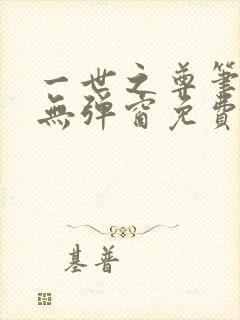 一世之尊筆
無彈窗免費
基普